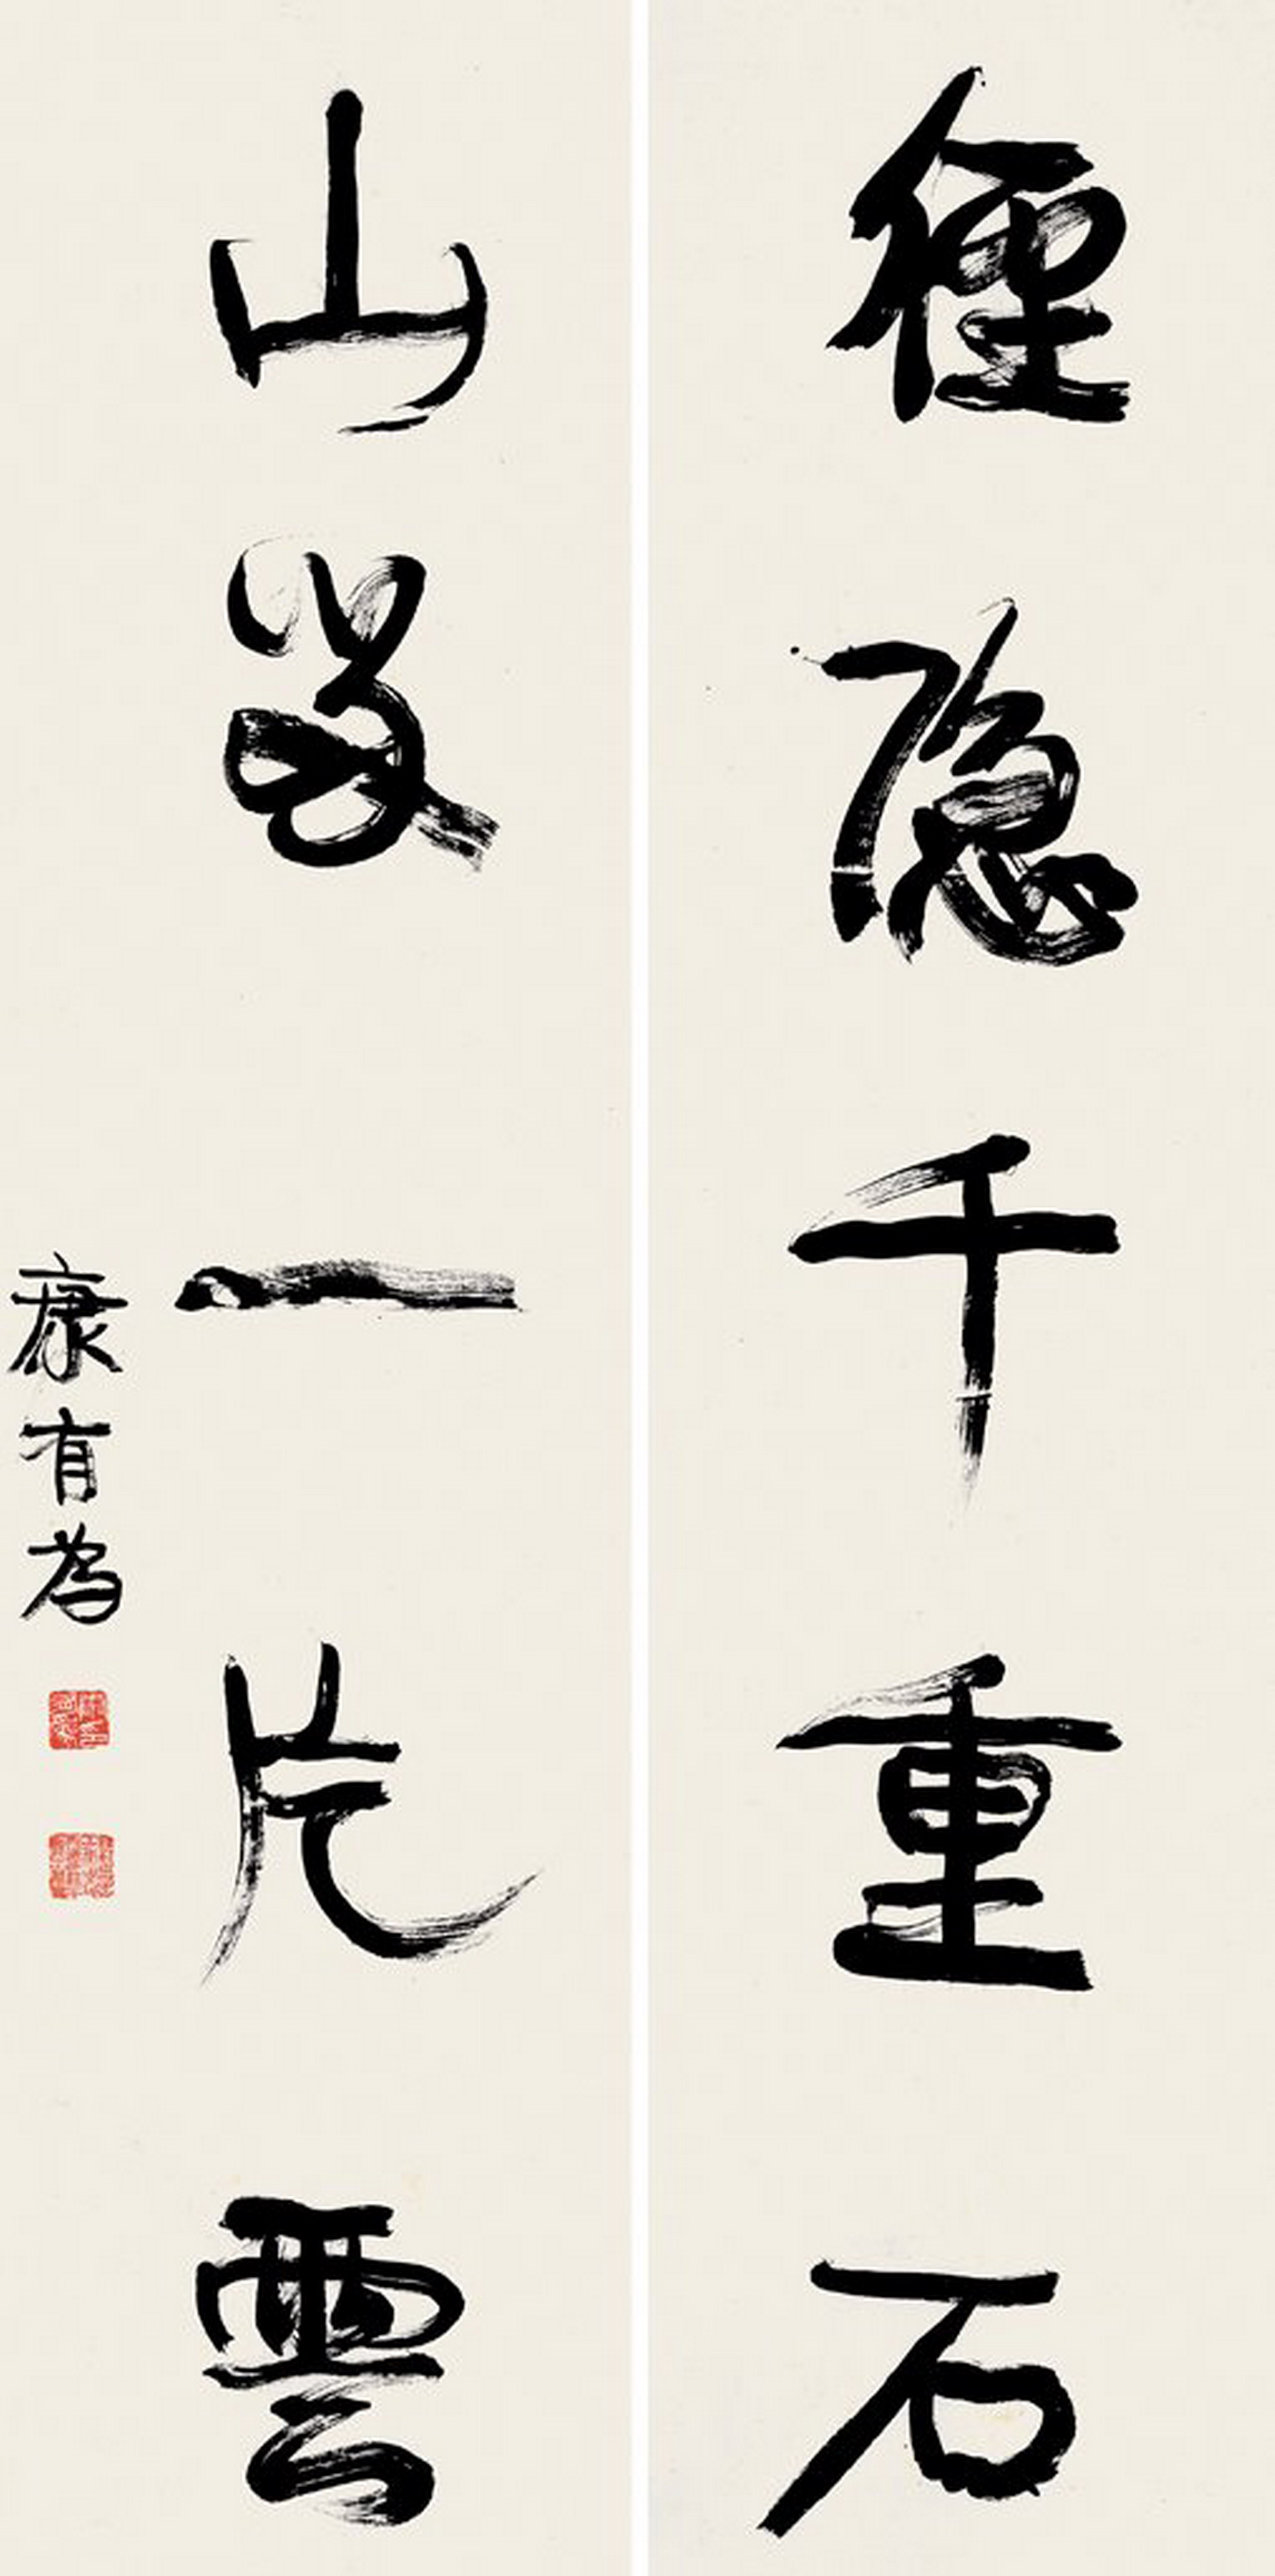 徑隱千重石
山留一片雲
康有為